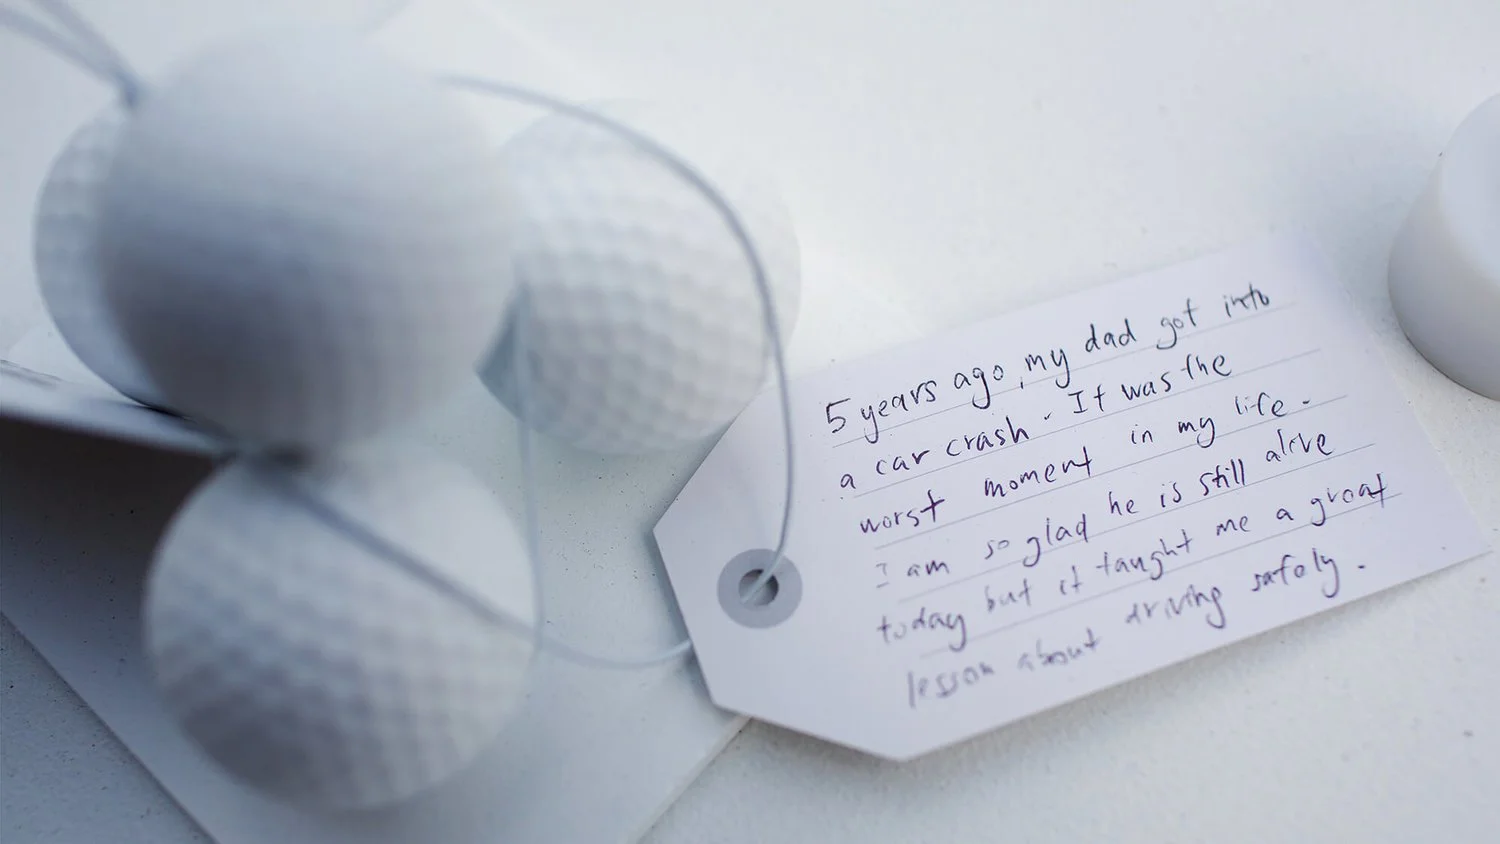 5 years ago, my dad got into
a car crash. It was the
worst moment in my life.
I am so glad he is still alive
today but it taught me a great
lesson about driving safely.